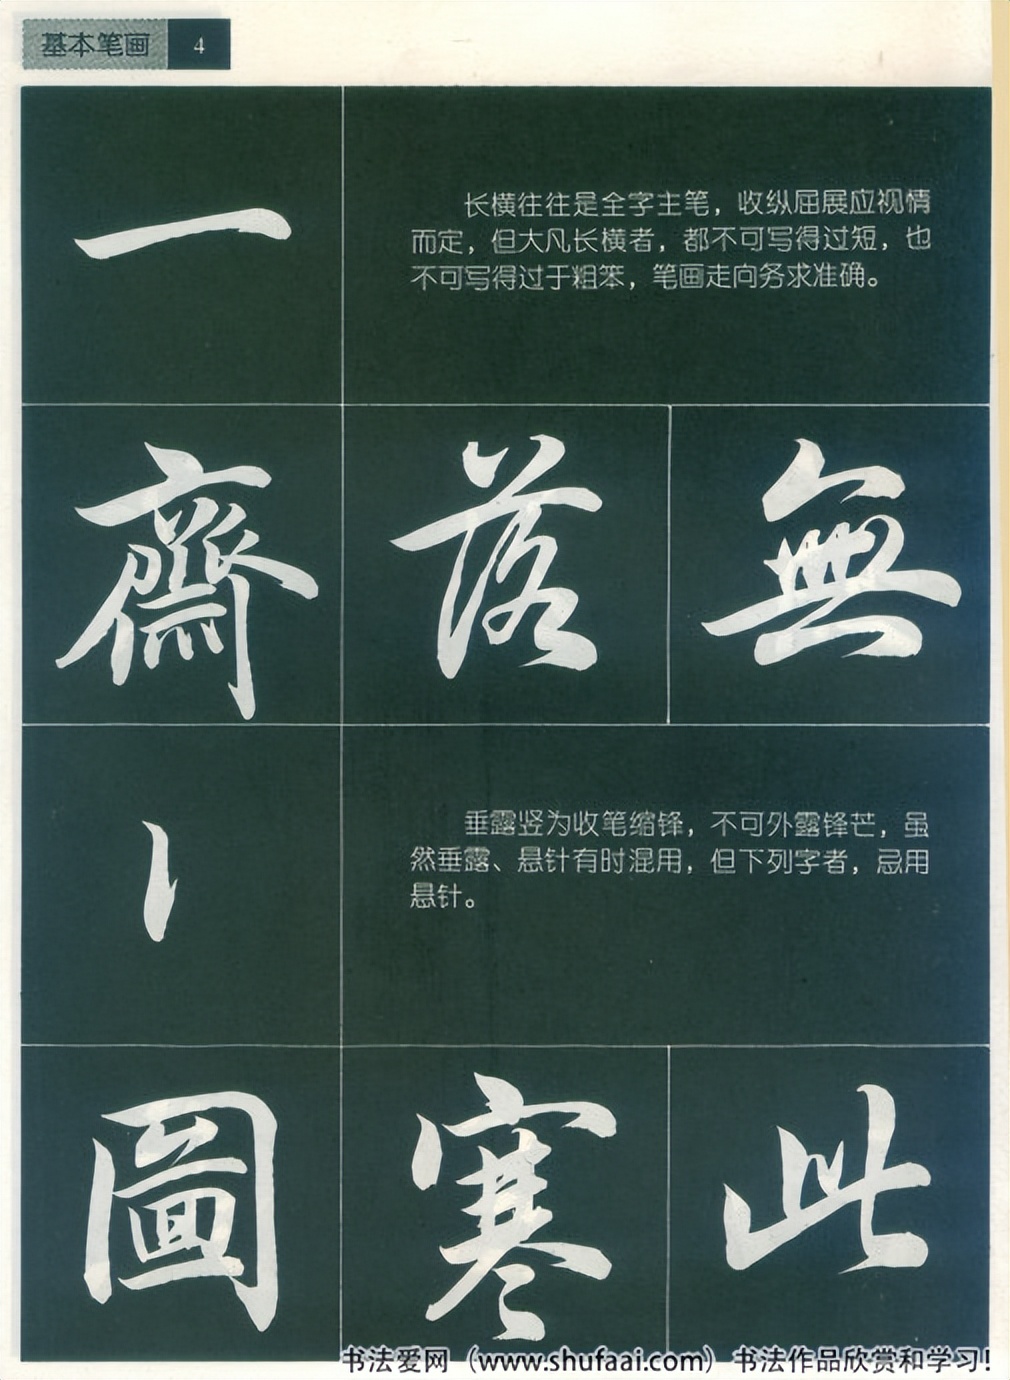 基本笔画 4
一
长横往往是全字主笔，收纵屈展应视情
而定，但大凡长横者，都不可写得过短，也
不可写得过于粗笨，笔画走向务求准确。
齋 落 無
丨
垂露竖为收笔缩锋，不可外露锋芒，虽
然垂露、悬针有时混用，但下列字者，忌用
悬针。
圖 寒 此
书法爱网（www.shufaai.com）书法作品欣赏和学习！